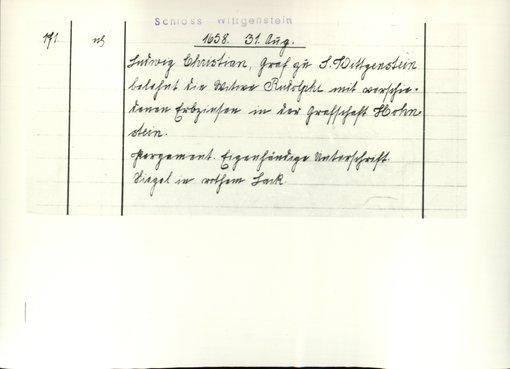 Schloss Wittgenstein
171. 1658. 31. Aug.
Ludwig Christian, Graf zu S. Wittgenstein
belehnt die Witwe Rudolphi mit verschie-
denen Erbzinsen in der Grafschaft Hohn
stein.
Pergament. Eigenhändige Unterschrift.
Siegel in rothem Lack.